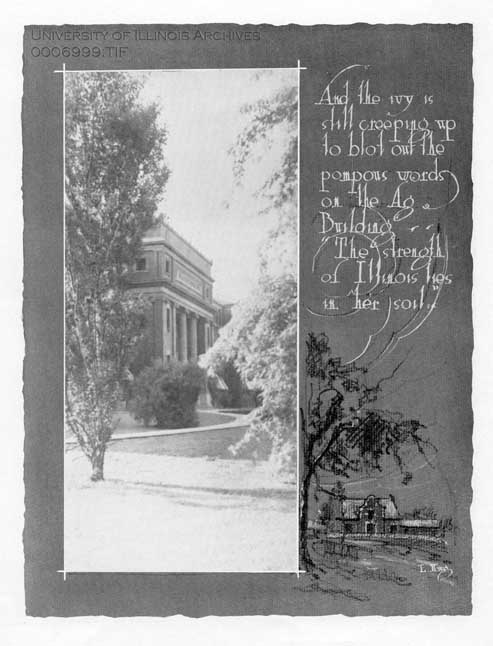 University of Illinois Archives
0006999.TIF
And the ivy is
still creeping up
to blot out the
pompous words
on the Ag
Building...
"The strength
of Illinois lies
in her soil."